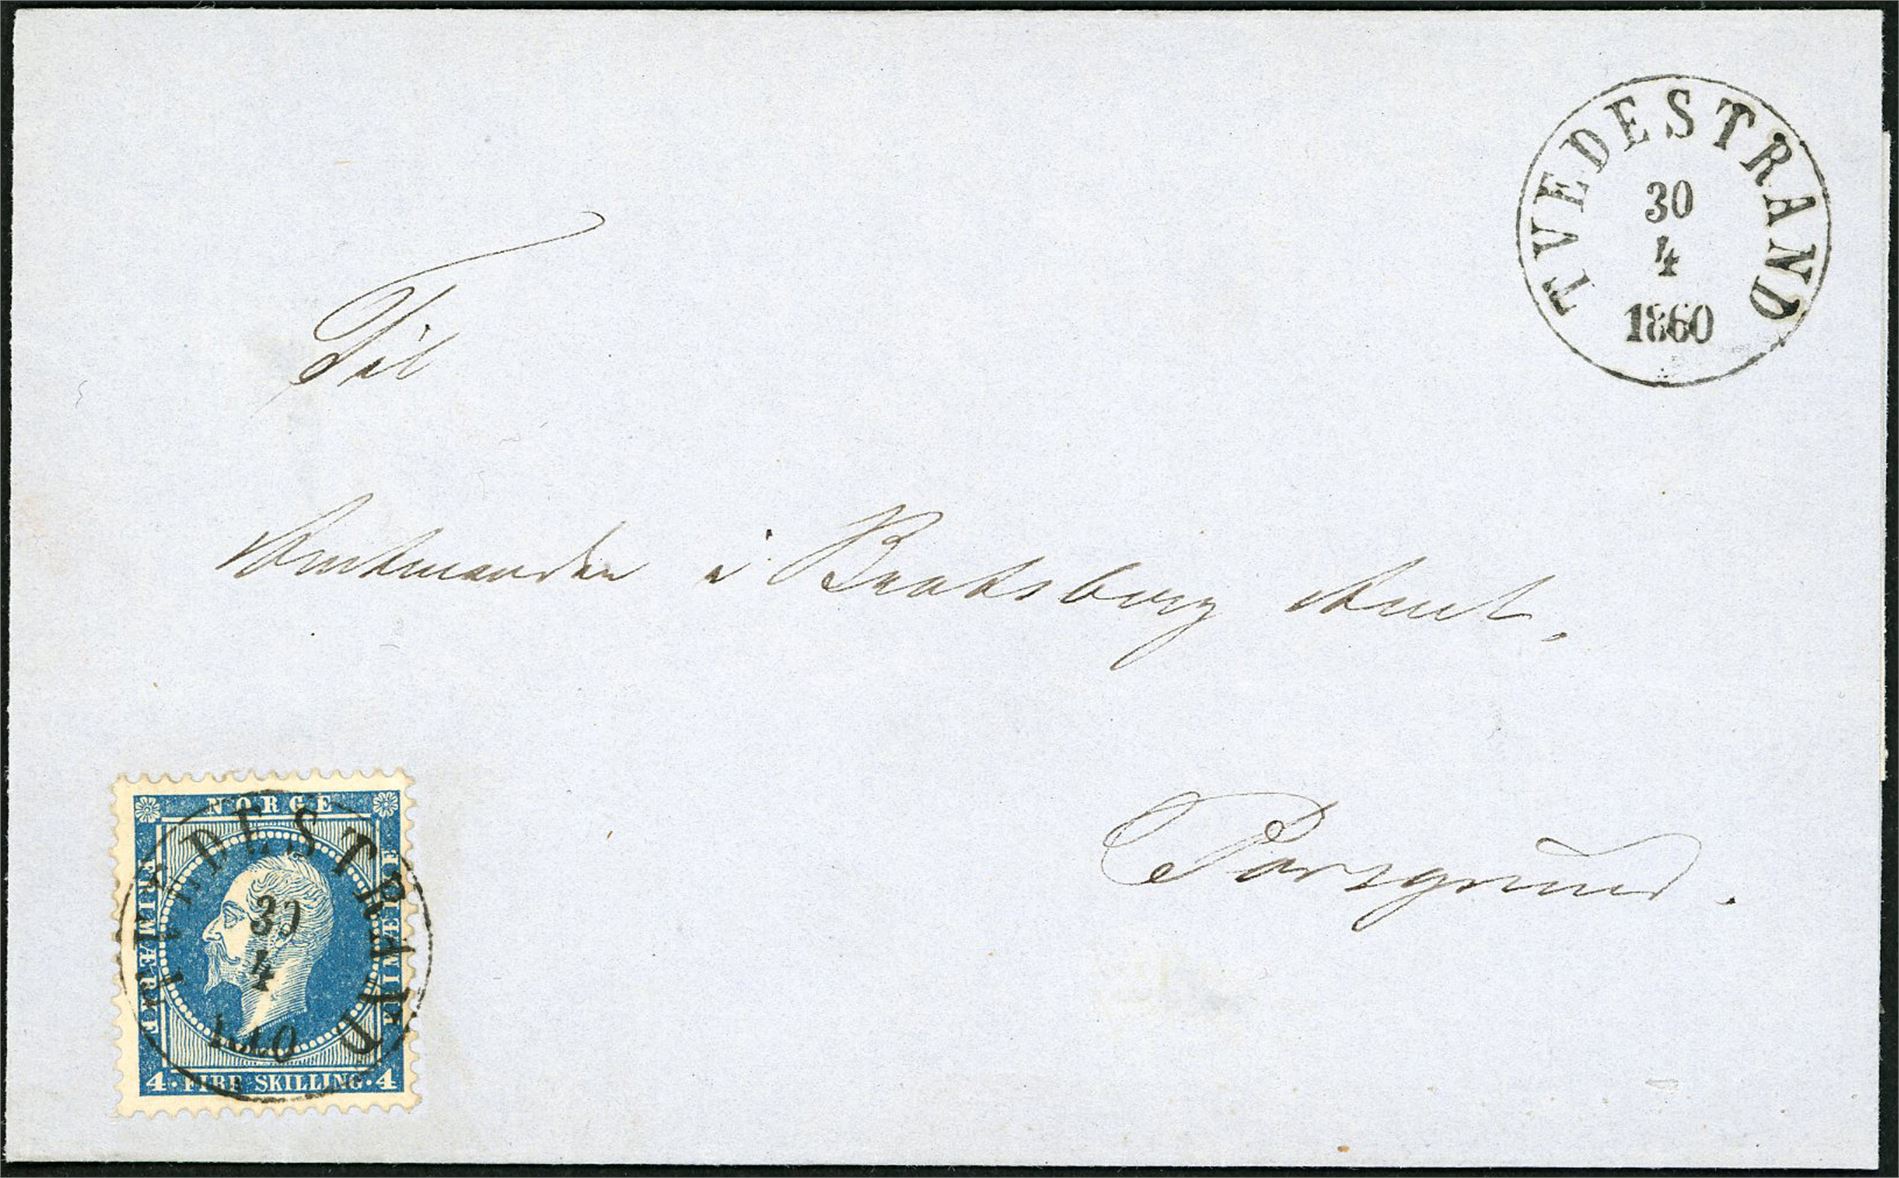 TVEDESTRAND
30
4
1860
Til
Amtmanden i Bratsberg Amt.
Porsgrund.
NORGE
FRIMÆRKE
FRIMÆRKE
4 · FIRE SKILLING · 4
TVEDESTRAND
30
4
1860